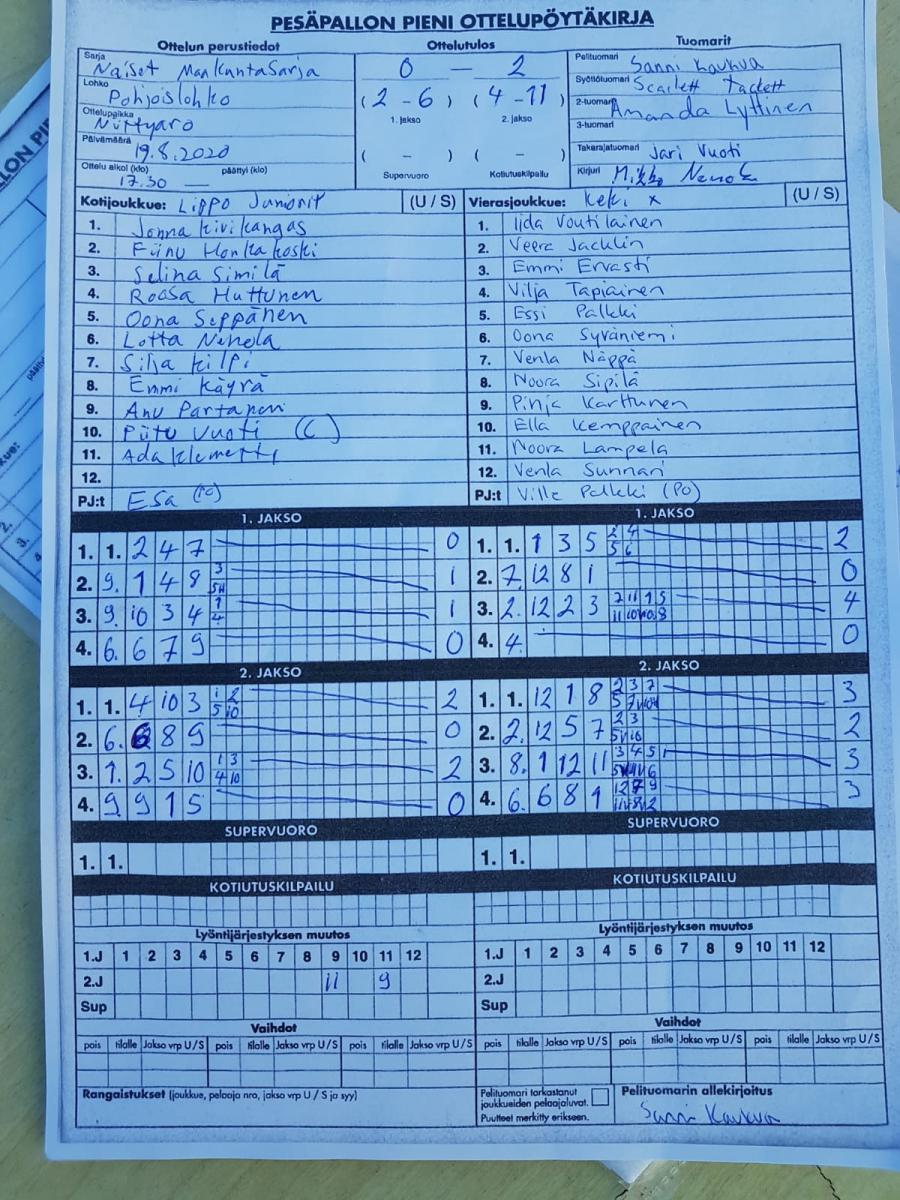 PESÄPALLON PIENI OTTELUPÖYTÄKIRJA
Ottelun perustiedot
Sarja
Naiset Maakuntasarja
Lohko
Pohjoislohko
Ottelupaikka
Niittyaro
Päivämäärä
19.8.2020
Ottelu alkoi (klo) päättyi (klo)
17.30 —
Ottelutulos
0 — 2
(2 - 6) (4 - 11)
1. jakso 2. jakso
( - ) ( - )
Supervuoro Kotiutuskilpailu
Tuomarit
Pelituomari Sanni Kaukua
Syöttötuomari Scarlett Tackett
2-tuomari Amanda Lyttinen
3-tuomari
Takarajatuomari Jari Vuoti
Kirjuri Mikko
Kotijoukkue: Lippo Juniorit (U / S)
1. Jonna Kivikangas
2. Fiinu Honkakoski
3. Selina Similä
4. Roosa Huttunen
5. Oona Seppänen
6. Lotta Nehela
7. Silja Kilpi
8. Emmi Käyrä
9. Anu Partanen
10. Piitu Vuoti (C)
11. Ada Klemetti
12.
PJ:t Esa (PO)
Vierasjoukkue: Keki x (U / S)
1. Iida Voutilainen
2. Veera Jacklin
3. Emmi Ervasti
4. Vilja Tapiainen
5. Essi Palkki
6. Oona Syväniemi
7. Venla Näppä
8. Noora Sipilä
9. Pinja Karttunen
10. Ella Kemppainen
11. Noora Lampela
12. Venla Sunnari
PJ:t Ville Palkki (PO)
1. JAKSO
1. 1. 2 4 7 0
2. 9. 1 4 8 3 1
3. 9. 10 3 4 1 4 1
4. 6. 6 7 9 0
2. JAKSO
1. 1. 4 10 3 1 2 5 10 2
2. 6. 6 8 9 0
3. 1. 2 5 10 1 3 4 10 2
4. 9. 9 1 5 0
1. JAKSO
1. 1. 1 3 5 2 4 5 6 2
2. 7. 12 8 1 0
3. 2. 12 2 3 4
4. 4. 0
2. JAKSO
1. 1. 12 1 8 2 3 7 3
2. 2. 12 5 7 2 3 2
3. 8. 1 12 11 3 4 5 3
4. 6. 6 8 1 3
SUPERVUORO
1. 1.
KOTIUTUSKILPAILU
SUPERVUORO
1. 1.
KOTIUTUSKILPAILU
Lyöntijärjestyksen muutos
1.J 1 2 3 4 5 6 7 8 9 10 11 12
2.J 11 9
Sup
Lyöntijärjestyksen muutos
1.J 1 2 3 4 5 6 7 8 9 10 11 12
2.J
Sup
Vaihdot
pois tilalle Jakso vrp U/S pois tilalle Jakso vrp U/S pois tilalle Jakso vrp U/S
Vaihdot
pois tilalle Jakso vrp U/S pois tilalle Jakso vrp U/S pois tilalle Jakso vrp U/S
Rangaistukset (joukkue, pelaaja nro, jakso vrp U / S ja syy)
Pelituomari tarkastanut
joukkueiden pelaajaluvat.
Puutteet merkitty erikseen.
Pelituomarin allekirjoitus
Sanni Kaukua